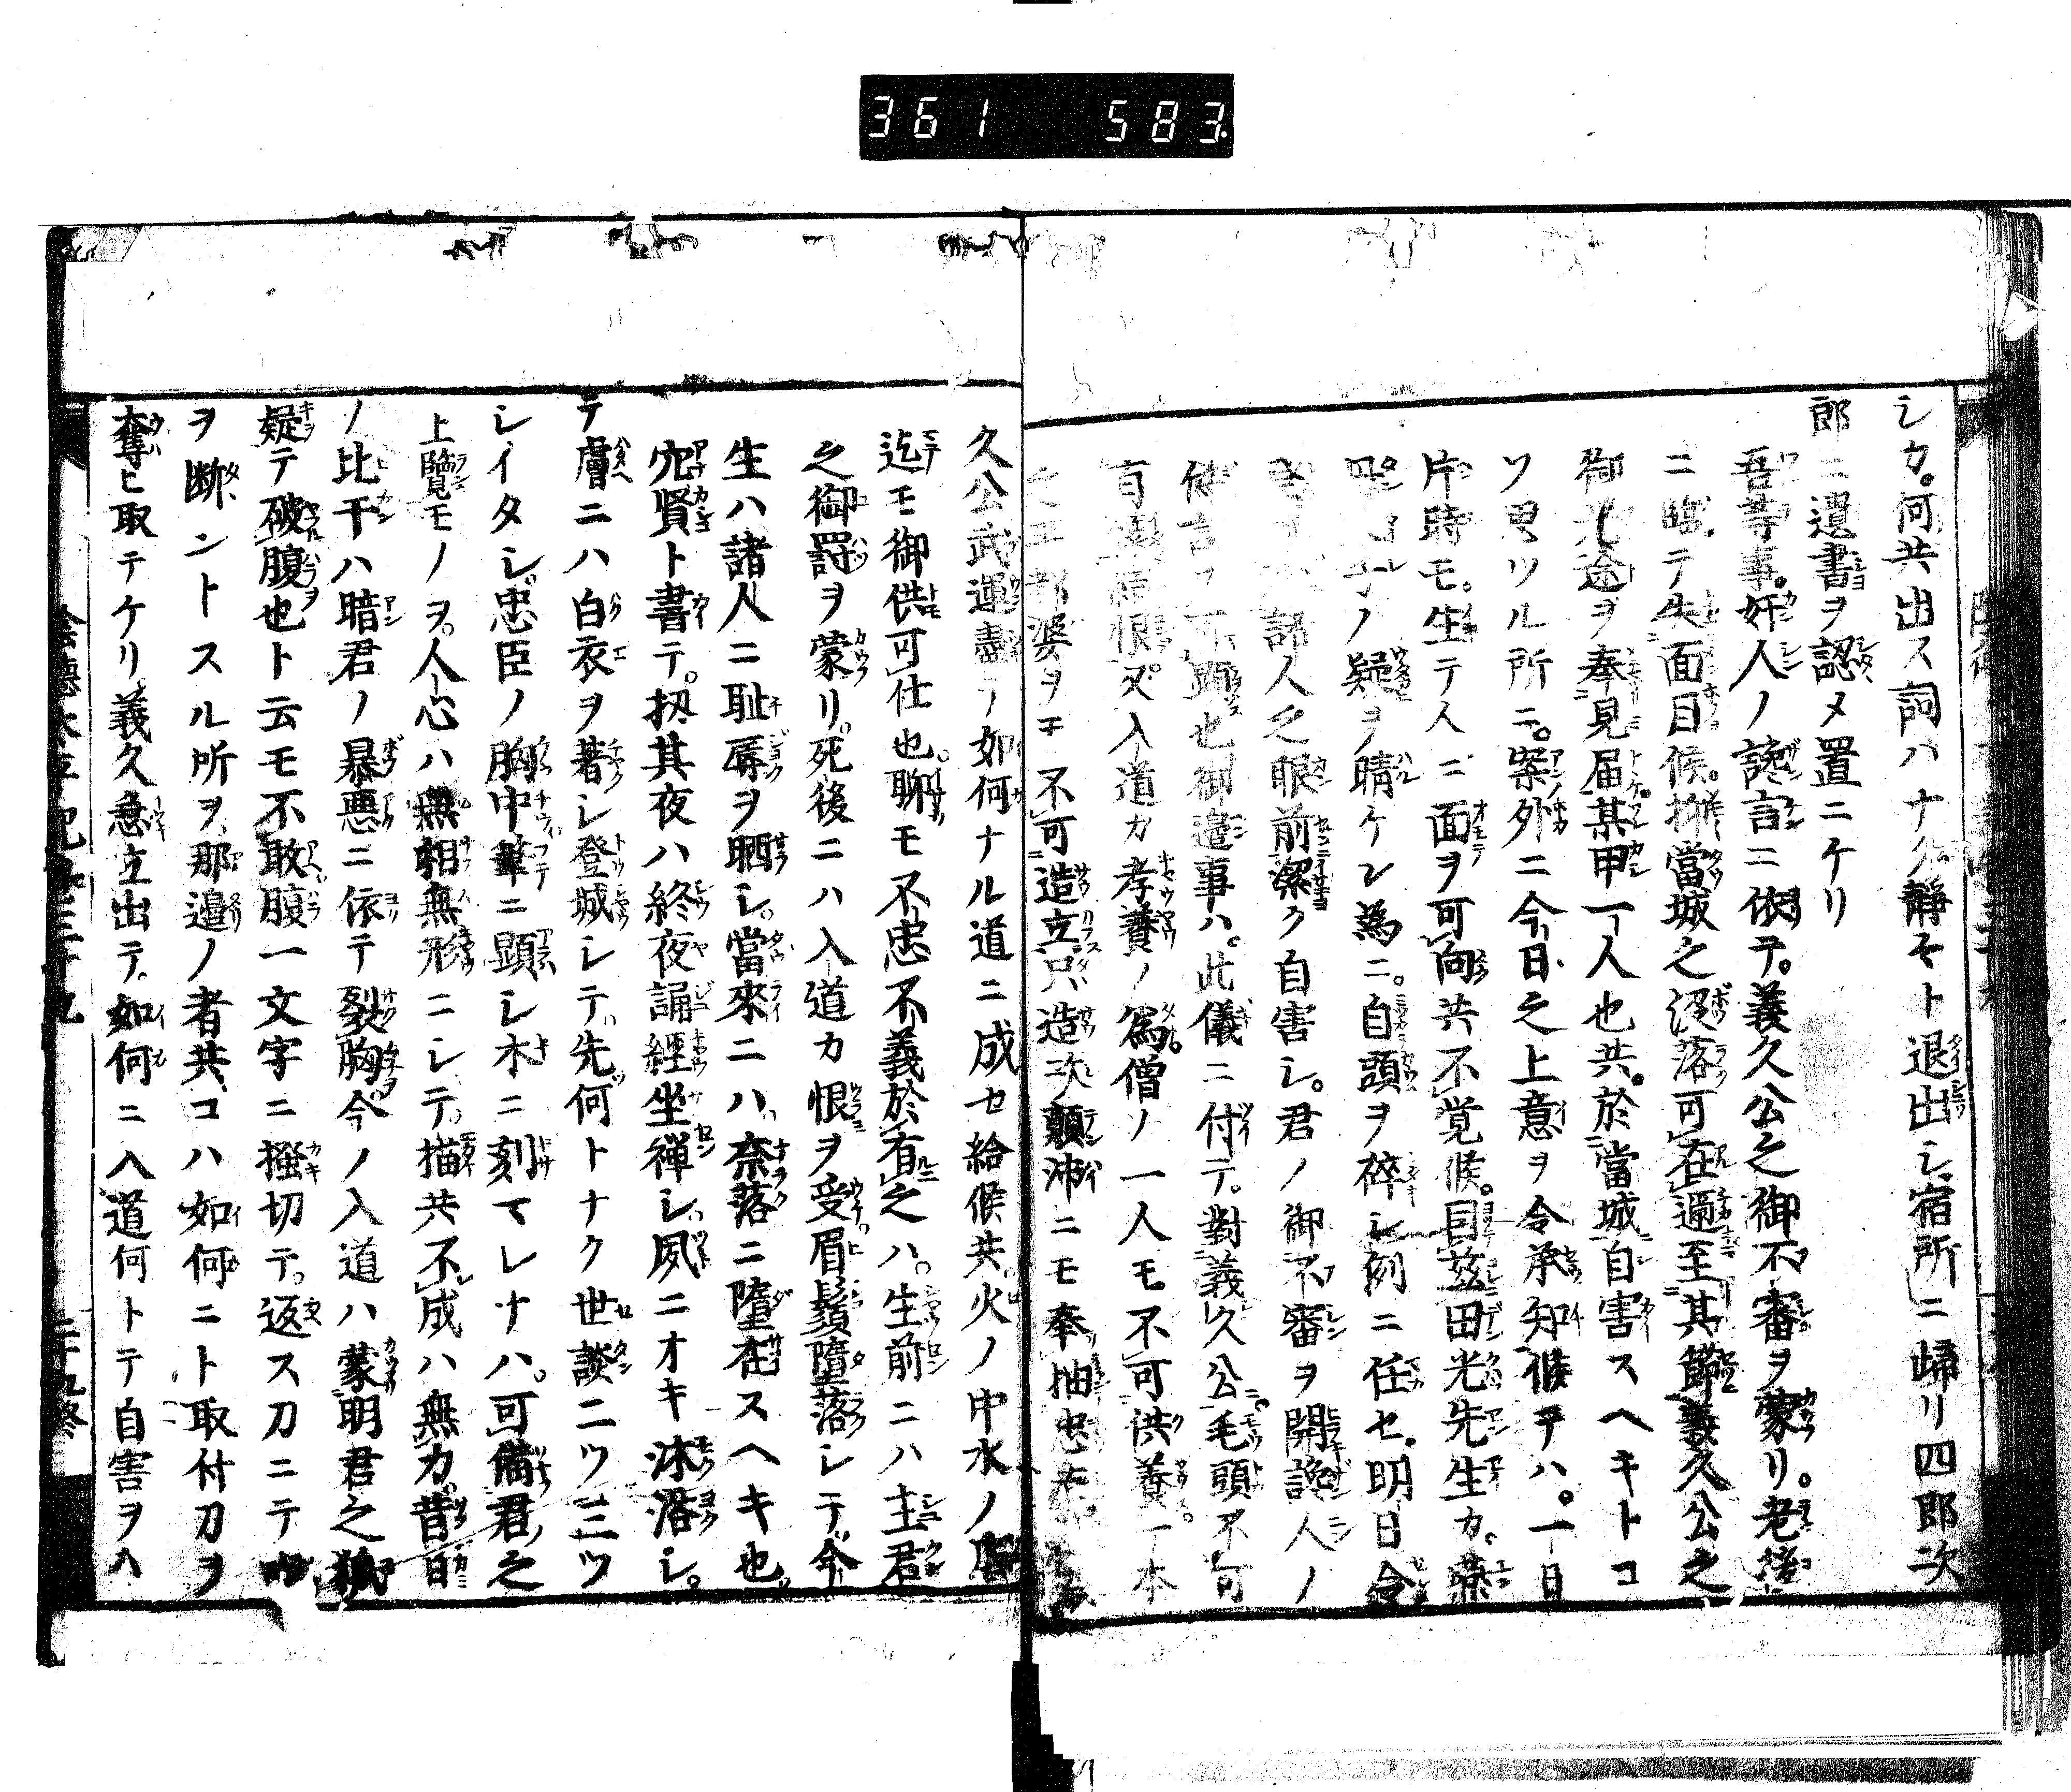 361 583
シカ。何共出ス詞ハナク静々ト退出シ宿所ニ帰リ四郎次
郎ニ遺書ヲ認メ置ニケリ
吾等事。奸人ノ讒言ニ依テ。義久公之御不審ヲ蒙リ。老後
ニ臨テ失面目候。抑當城之没落可在迩至其節義久公之
御先途ヲ奉見届某甲一人也共。於當城自害スヘキトコ
ソ思ツル所ニ。案外ニ今日之上意ヲ令承知候テハ。一日
片時モ。生テ人ニ面ヲ可向共不覚候。因茲田光先生カ。燕
ノ疑ヲ晴ケン為ニ。自頭ヲ碎シ例ニ任セ。明日
諸人之眼前潔ク自害シ。君ノ御不審ヲ開讒人ノ
可顕也御邉事ハ。此儀ニ付テ。對義久公。毛頭不可
有 恨又入道カ孝養ノ為。僧ソ一人モ不可供養一本
婆ヲモ不可造立只造次顛沛ニモ奉抽忠
久公武運盡ノ如何ナル道ニ成セ給候共火ノ中水ノ底
迄モ御供可仕也。聊モ不忠不義於有之ハ。生前ニハ主君
之御罸ヲ蒙リ。死後ニハ入道カ恨ヲ受眉鬚墮落シテ今
生ハ諸人ニ耻辱ヲ晒シ。當來ニハ奈落ニ墮在スヘキ也
穴賢ト書テ。扨其夜ハ終夜誦經坐禅シ夙ニオキ沐浴シ。
テ膚ニハ白衣ヲ著シ登城シテ先何トナク世談二ツ三ツ
シイタシ忠臣ノ胸中筆ニ顕シ木ニ刻マレナハ。可備君之
上覧モノヲ。人心ハ無相無形ニシテ描共不成ハ無力。昔日
ノ比干ハ暗君ノ暴悪ニ依テ裂胸今ノ入道ハ蒙明君之御
疑テ破腹也ト云モ不敢腹一文字ニ掻切テ。返ス刀ニテ
ヲ断ントスル所ヲ那邉ノ者共コハ如何ニト取付刀ヲ
奪ヒ取テケリ義久急立出テ如何ニ入道何トテ自害ヲハ
陰徳太平記巻三十九 二十九終